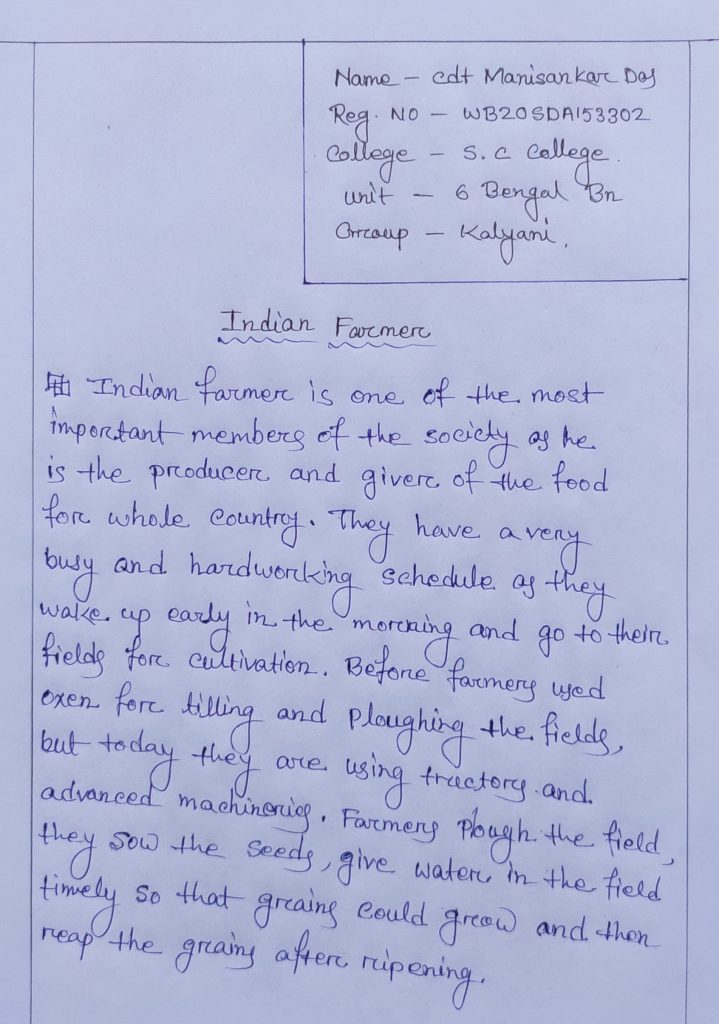 Name - cdt Manisankar Das
Reg. NO - WB20SDA153302
College - S. C College.
unit - 6 Bengal Bn
Group - Kalyani.
Indian Farmer
Indian farmer is one of the most
important members of the society as he
is the producer and giver of the food
for whole country. They have a very
busy and hardworking schedule as they
wake up early in the morning and go to their
fields for cultivation. Before farmers used
oxen for tilling and ploughing the fields,
but today they are using tractors and
advanced machineries. Farmers Plough the field,
they sow the seeds, give water in the field
timely so that grains could grow and then
reap the grains after ripening.